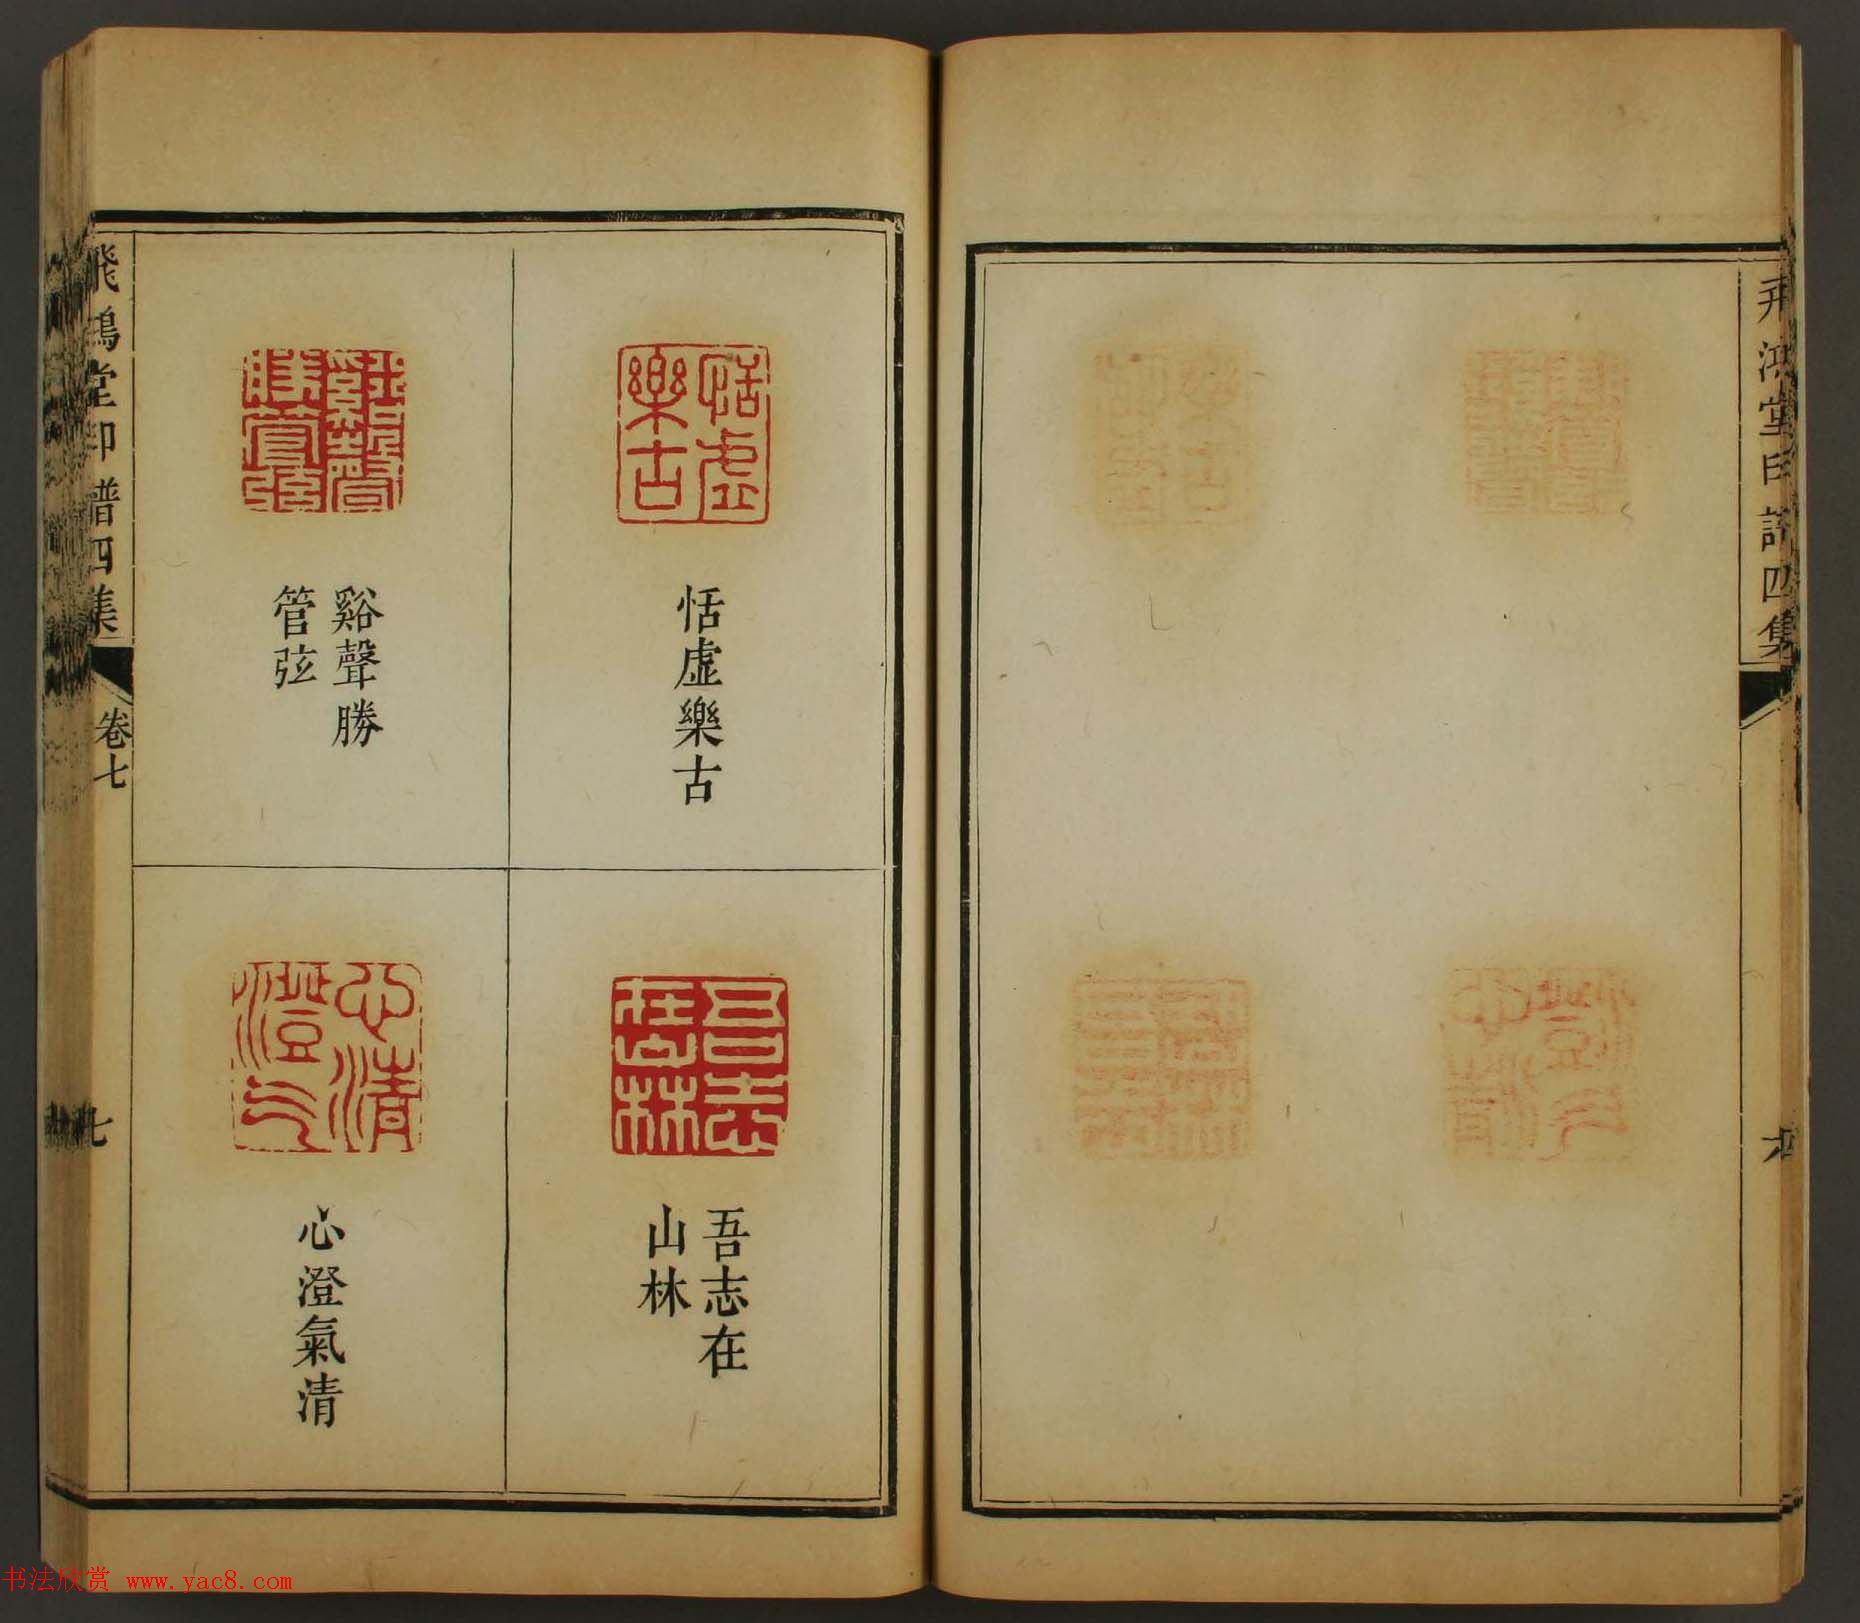 飛鴻堂印譜四集
六
恬虛樂古
恬虛樂古
吾志在山林
吾志在
山林
谿聲勝管弦
谿聲勝
管弦
心清澄气
心澄氣清
飛鴻堂印譜四集
卷七
七
书法欣赏 www.yac8.com